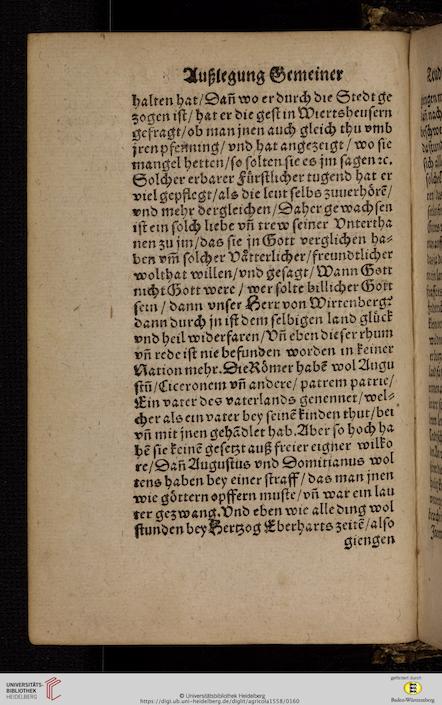 Außlegung Gemeiner
halten hat/Dañ wo er durch die Stedt ge
zogen ist/ hat er die gest in Wiertsheusern
gefragt/ob man jnen auch gleich thu vmb
jren pfenning/ vnd hat angezeigt / wo sie
mangel hetten/so solten sie es jm sagen ꝛc.
Solcher erbarer Fürstlicher tugend hat er
viel gepflegt/als die leut selbs zuuerhörē/
vnd mehr dergleichen/Daher gewachsen
ist ein solch liebe vñ trew seiner Vntertha
nen zu jm/das sie jn Gott verglichen ha-
ben vm̃ solcher Vätterlicher/freundtlicher
wolthat willen/vnd gesagt/Wann Gott
nicht Gott were / wer solte billicher Gott
sein / dann vnser Herr von Wirtenberg?
dann durch jn ist dem selbigen land glück
vnd heil widerfaren/Vñ eben dieser rhum
vñ rede ist nie befunden worden in keiner
Nation mehr. Die Römer habē wol Augu
stũ/Ciceronem vñ andere/ patrem patrie/
Ein vater des vaterlands genennet/wel-
cher als ein vater bey seinē kinden thut/bei
vñ mit jnen gehādlet hab. Aber so hoch ha
bē sie keinē gesetzt auß freier eigner wilko
re/Dañ Augustus vnd Domitianus wol
tens haben bey einer straff/das man jnen
wie göttern opffern muste/vñ war ein lau
ter gezwang. Vnd eben wie alle ding wol
stunden bey Hertzog Eberharts zeitē/also
giengen
UNIVERSITÄTS-
BIBLIOTHEK
HEIDELBERG
© Universitätsbibliothek Heidelberg
https://digi.ub.uni-heidelberg.de/diglit/agricola1558/0160
gefördert durch
Baden-Württemberg